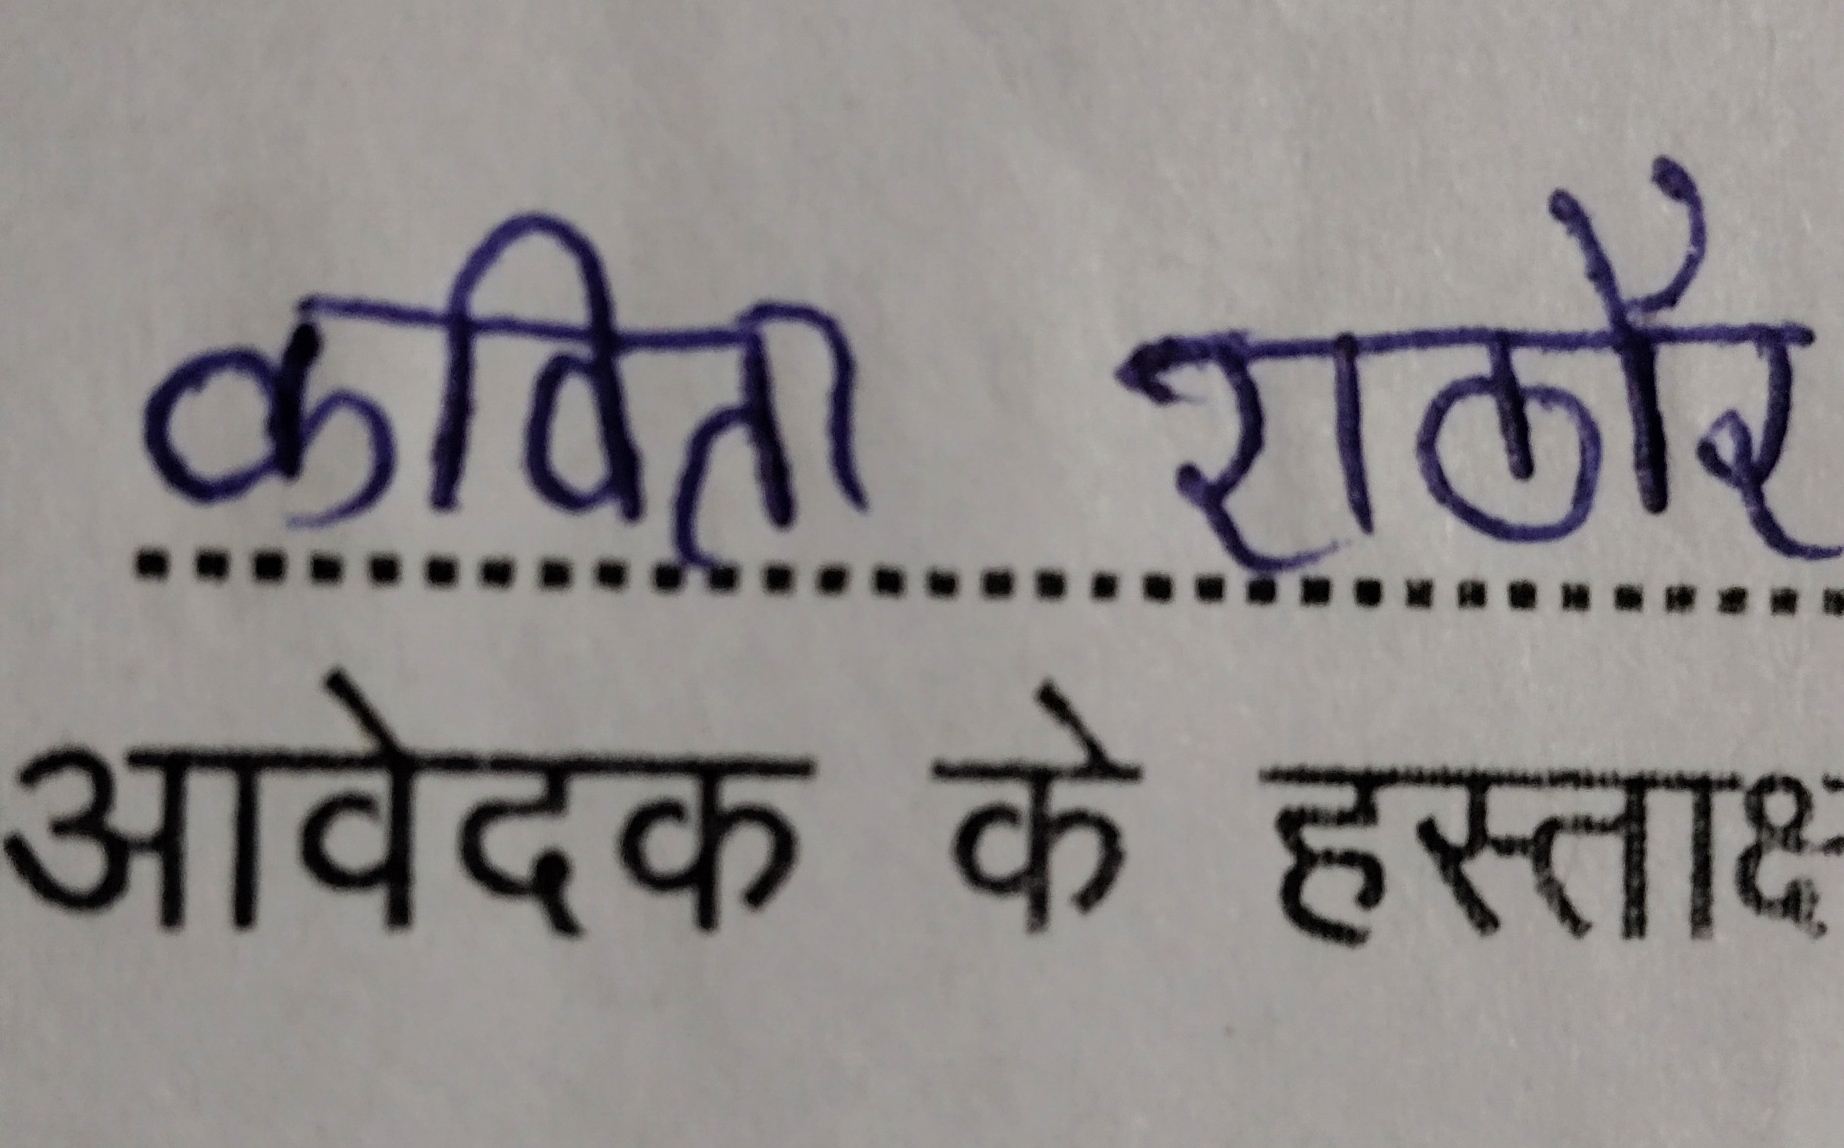 कविता राठौर
आवेदक के हस्ताक्ष